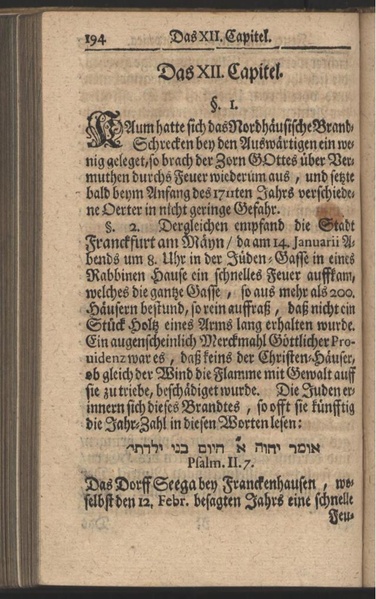 194 Das XII. Capitel.
Das XII. Capitel.
§. 1.
KAum hatte sich das Nordhäusische Brand-
Schrecken bey den Auswärtigen ein we-
nig geleget, so brach der Zorn GOttes über Ver-
muthen durchs Feuer wiederum aus, und setzte
bald beym Anfang des 1711ten Jahrs verschiede-
ne Oerter in nicht geringe Gefahr.
§. 2. Dergleichen empfand die Stadt
Franckfurt am Mäyn/ da am 14. Januarii A-
bends um 8. Uhr in der Jüden-Gasse in eines
Rabbinen Hause ein schnelles Feuer auffkam,
welches die gantze Gasse, so aus mehr als 200.
Häusern bestund, so rein auffraß, daß nicht ein
Stück Holtz eines Arms lang erhalten wurde.
Ein augenscheinlich Merckmahl Göttlicher Pro-
videnz war es, daß keins der Christen-Häuser,
ob gleich der Wind die Flamme mit Gewalt auff
sie zu triebe, beschädiget wurde. Die Juden er-
innern sich dieses Brandtes, so offt sie künfftig
die Jahr-Zahl in diesen Worten lesen:
אומר יהוה א היום בני ילדתי
Psalm. II. 7.
Das Dorff Seega bey Franckenhausen, wo-
selbst den 12. Febr. besagten Jahrs eine schnelle
Feu-